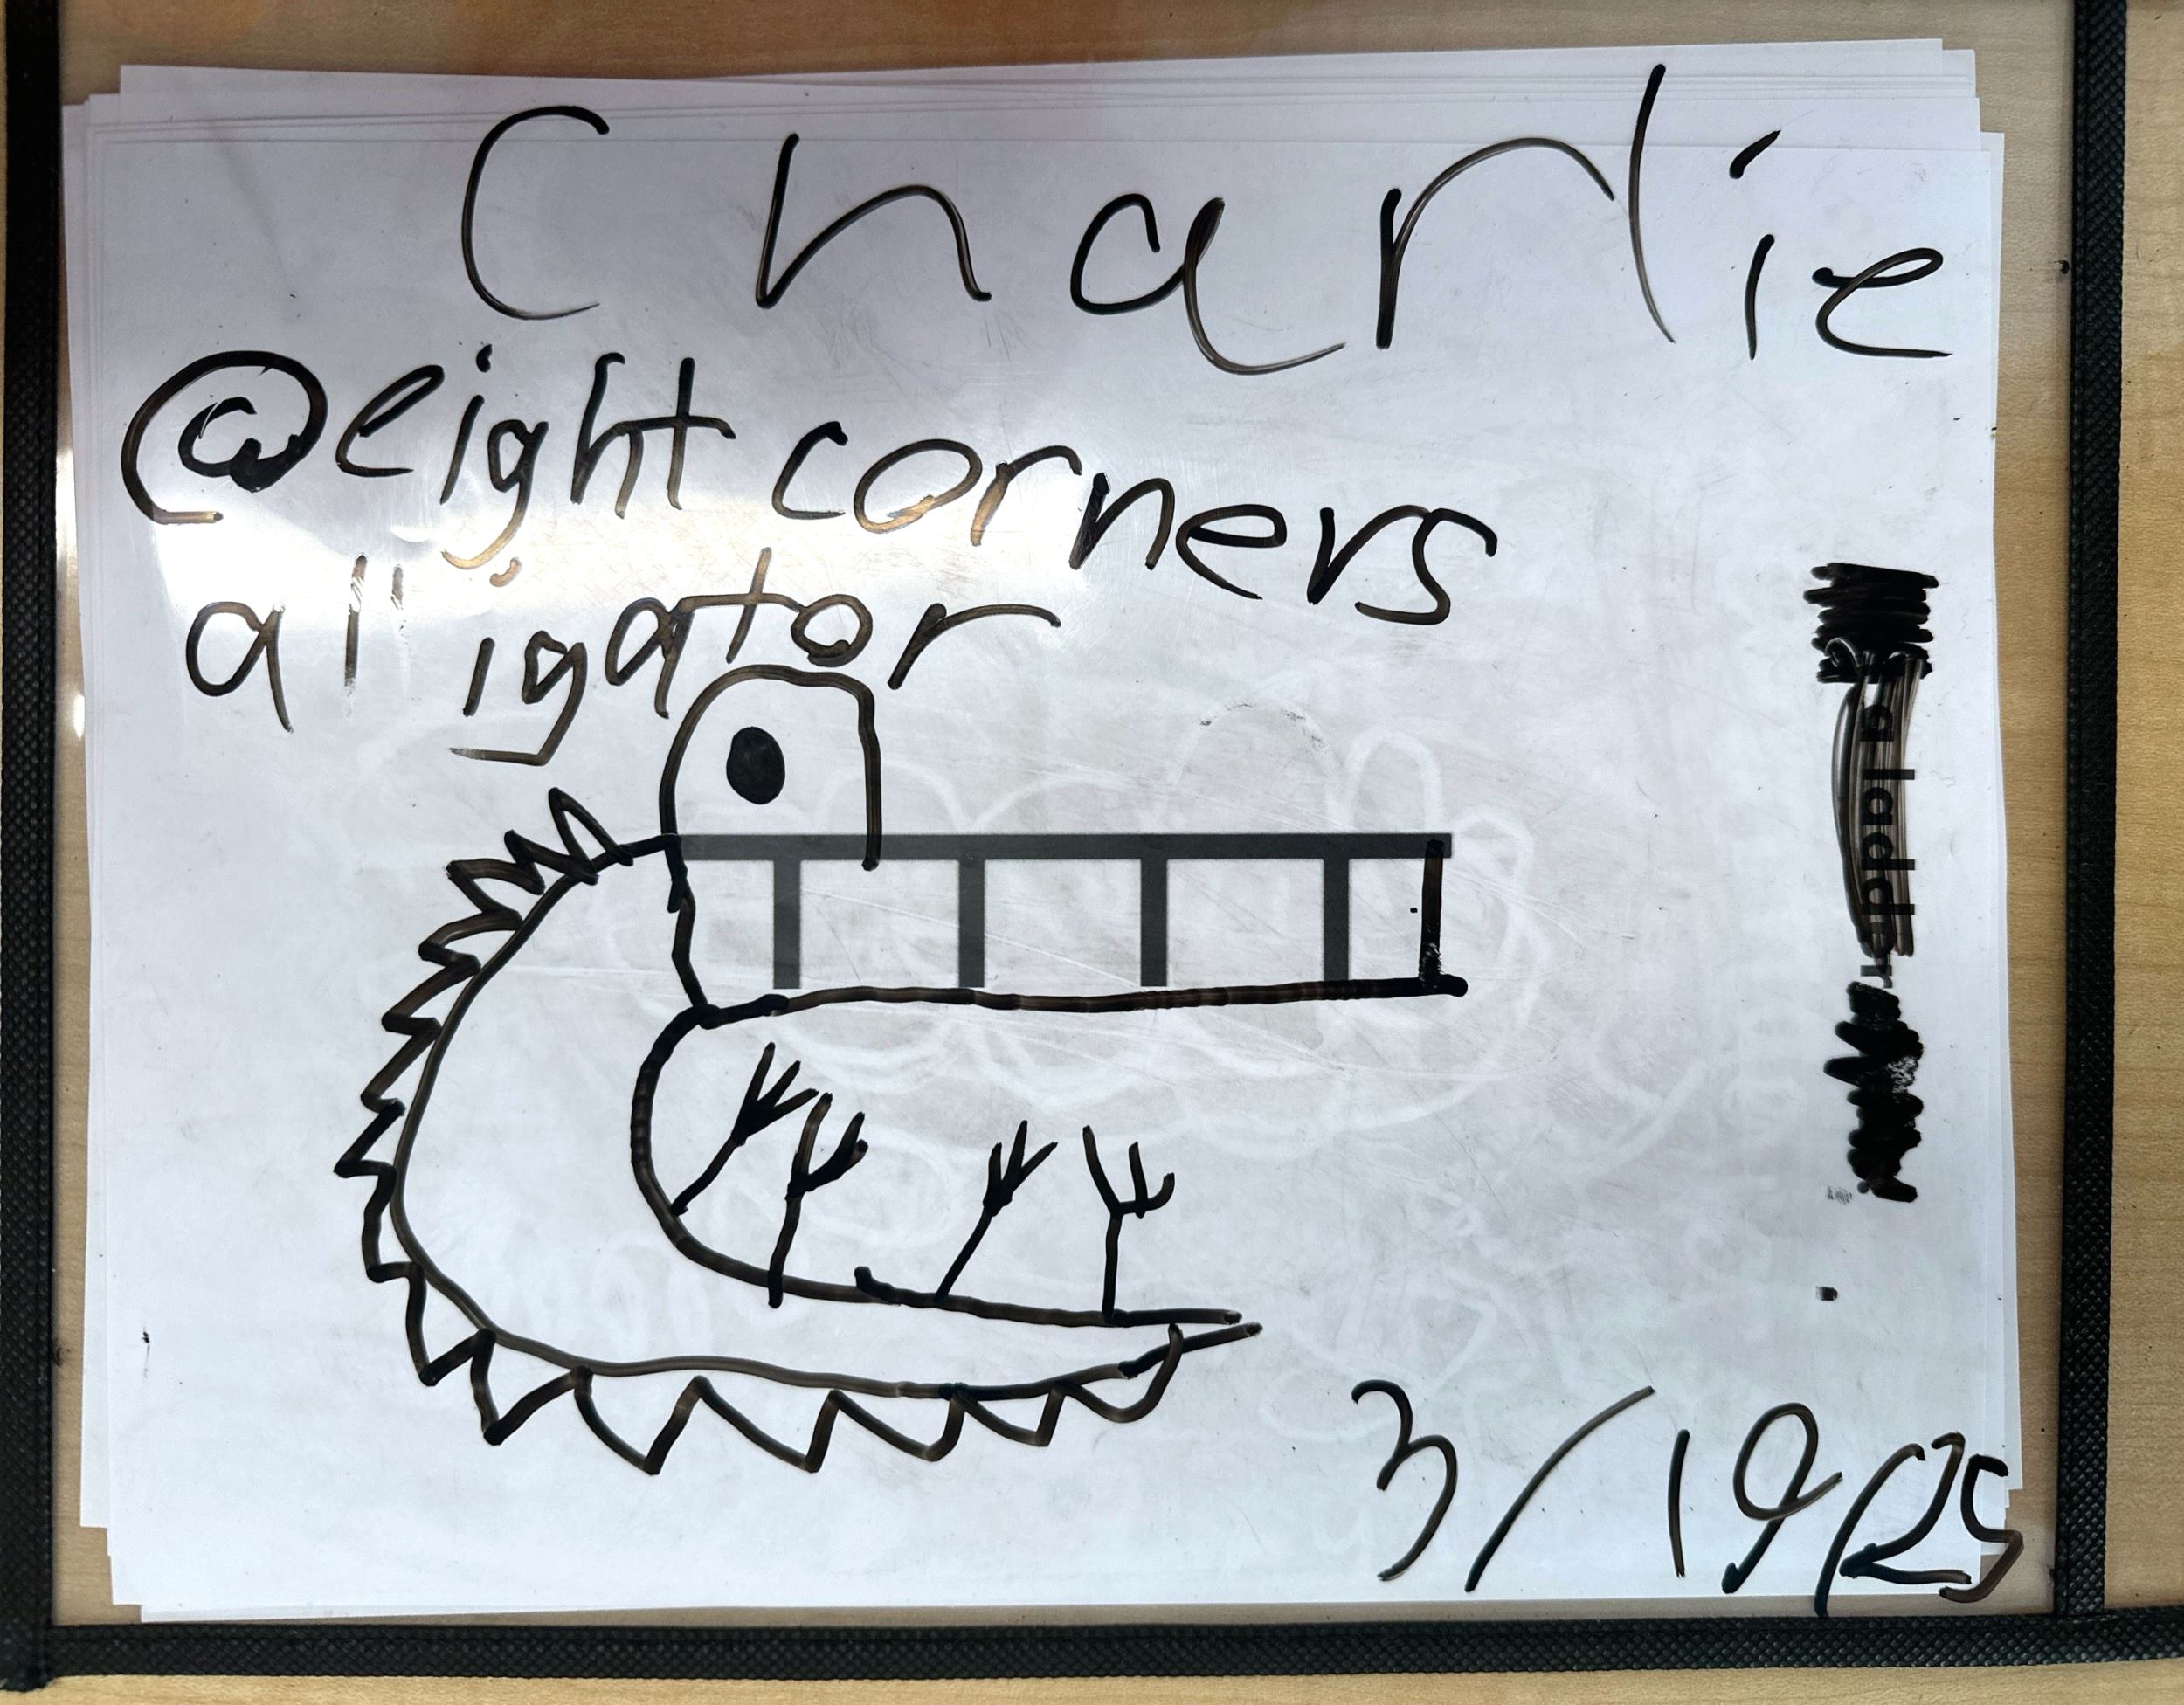 Charlie
@eightcorners
alligator
a ladder
3/19/25